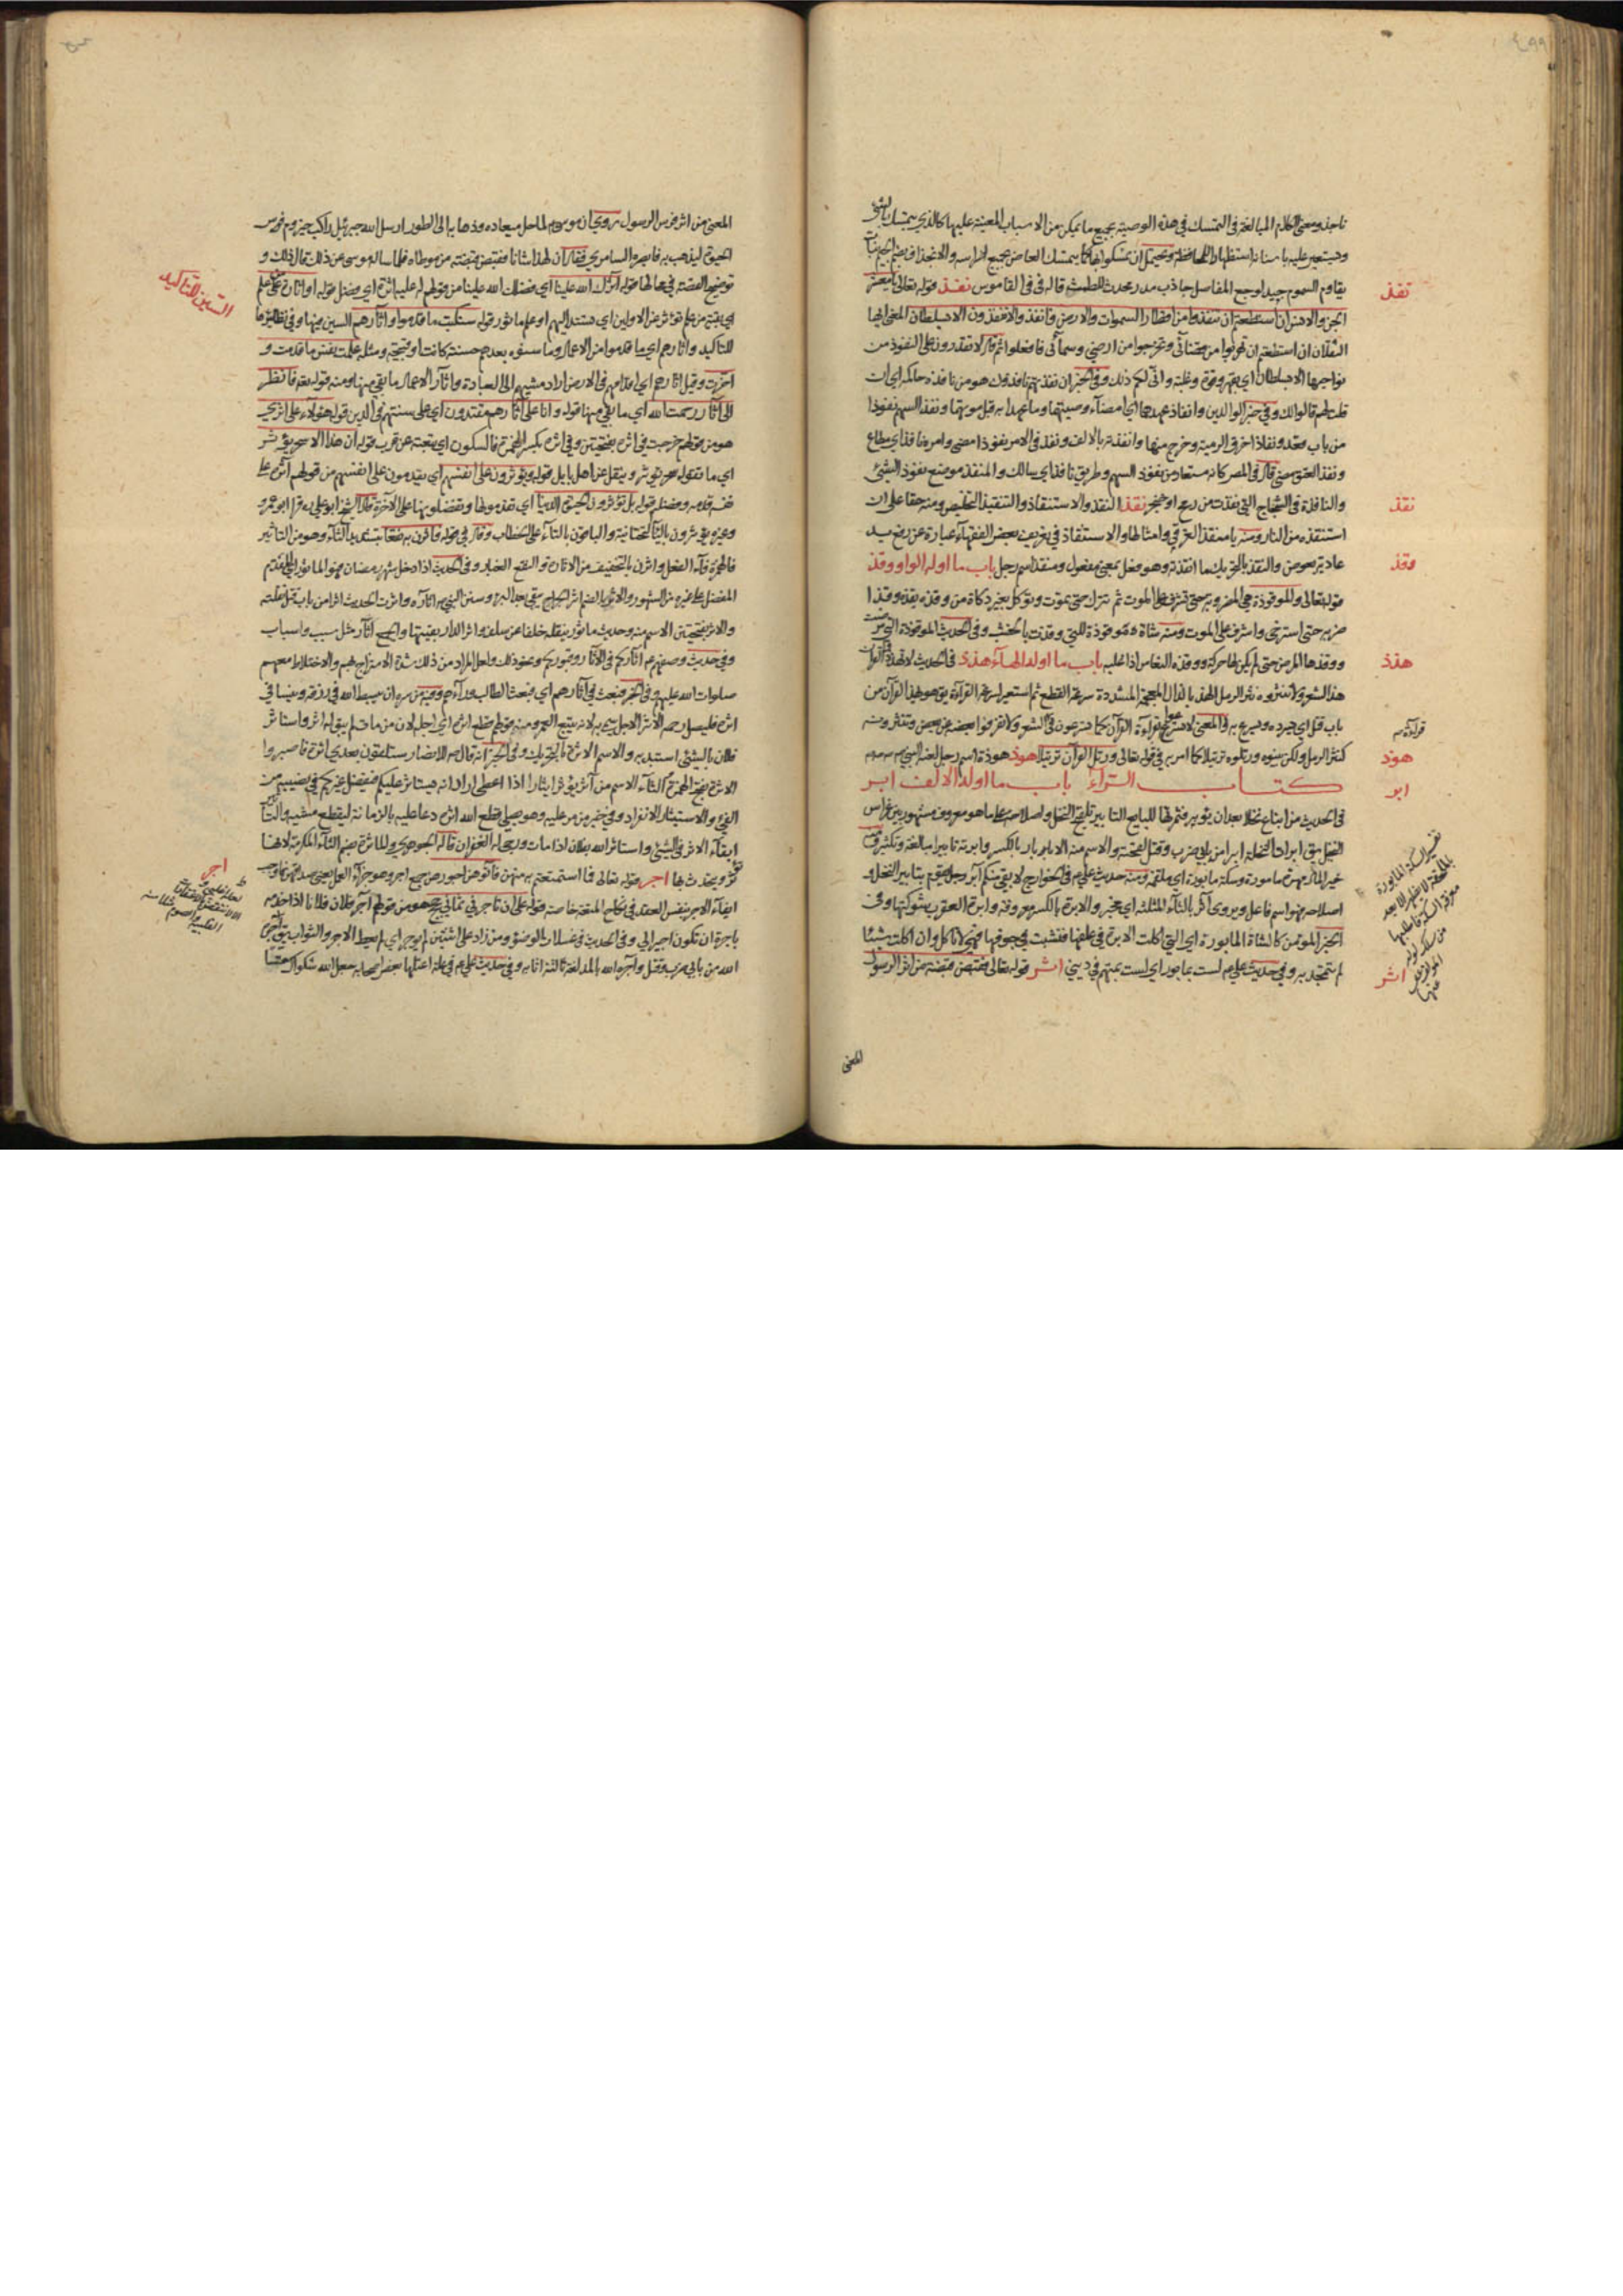 ٤٩٩
ناجذ ومعنى الكلام المبالغة في التمسك في هذه الوصية بجميع ما يمكن من الاسباب المعينة عليها كالذي يتمسك بالشئ
ويستعين عليه باسنانه استظهارا للمحافظة ويحتمل ان
يقاوم السموم جيد لوجع المفاصل جاذب مدر محدث للطمث قاله في القاموس نفذ قوله تعالى يا معشر
الجن والانس ان استطعتم ان تنفذوا من اقطار السموات والارض فانفذوا لا تنفذون الا بسلطان المعنى ايها
الثقلان ان استطعتم ان تهربوا من قضائي وتخرجوا من ارضي وسمائي فافعلوا ثم قال لا تقدرون على النفوذ من
نواحيها الا بسلطان اي بقهر وقوة وغلبة وانى لكم ذلك وفي الخبر ان نفذتهم نافذوك هو من نافذته حاكمه اي ان
قلت لهم قالوا لك وفي خبر الوالدين وانفاذ عهدهما اي امضاء وصيتهما وما عهدا به قبل موتهما ونفذ السهم نفوذا
من باب قعد ونفاذا خرق الرمية وخرج منها وانفذته بالالف ونفذ في الامر نفوذا مضى وامره نافذ اي مطاع
ونفذ العتق مضى قال في المصر كانه مستعار من نفوذ السهم وطريق نافذ اي سالك والمنفذ موضع نفوذ الشئ
والنافذة في الشجاج التي نفذت من رمح او خنجر نقذ النقذ والاستنقاذ والتنقيذ التخليص ومنه حقا على ان
استنقذه من النار ومنه يا منقذ الغرقى وامثالها والاستنقاذ في تعريف بعض الفقهاء عبارة عن رفع يد
عادية بعوض والنقذ بالتحريك ما انقذته وهو فعل بمعنى مفعول ومنقذ اسم رجل باب ما اوله الواو وقذ
قوله تعالى والموقوذة هي المضروبة حتى تشرف على الموت ثم تترك حتى تموت وتؤكل بغير ذكاة من وقذه يقذه وقذا
ضربه حتى استرخى واشرف على الموت ومنه شاة موقوذة للتي وقذت بالخشب وفي الحديث الموقوذة التي مرضت
ووقذها المرض حتى لم يكن لها حركة ووقذه النعاس اذا غلبه باب ما اوله الهاء هذذ في الحديث لا تهذوا القران
هذ الشعر ولا تنثروه نثر الرمل الهذ بالذال المعجمة المشددة سرعة القطع ثم استعير لسرعة القراءة يق هو يهذ القرآن من
باب قتل اي يسرده ويسرع به والمعنى لا تسرعوا بقراءة القرآن كما تسرعون في الشعر ولا تفرقوا بعضه عن بعض وتنثرونه
كنثر الرمل ولكن بينوه ورتلوه ترتيلا كما امر به في قوله تعالى ورتل القرآن ترتيلا هوذ هوذة اسم رجل
كتاب الرآء باب ما اوله الالف ابر
في الحديث من ابتاع نخلا بعد ان يؤبر فثمرتها للبايع التابير تلقيح النخل واصلاحه على ما هو معروف مشهور بين غراس
النخل يق ابرت النخلة ابرا من بابي ضرب وقتل لقحته والاسم منه الابار بالكسر وابرته تابيرا مبالغة وتكثير ومنه
خير المال مهرة مامورة وسكة مابورة اي ملقحة ومنه حديث علي في الخوارج لا بقي منكم آبر اي رجل يقوم بتابير النخل و
اصلاحه فهو اسم فاعل ويروى آثر بالثاء المثلثة اي مخبر والابرة بالكسر معروفة وابرة العقرب شوكتها وفي
الخبر المؤمن كالشاة المابورة اي التي اكلت الابرة في علفها فنشبت في جوفها فهي لا تاكل وان اكلت شيئا
لم ينجع فيه وفي حديث علي لست بمابور اي لست بمتهم في ديني اثر قوله تعالى فقبضت قبضة من اثر الرسول
المعنى
نفذ
نقذ
وقذ
هذذ
هوذ
ابر
اثر
المعنى من اثر فرس الرسول روي ان موسى لما حل ميعاده وذهابه الى الطور ارسل الله جبرئيل راكب حيزوم فرس
الحيوة ليذهب به فابصره السامري فقال ان لهذا شانا فقبض قبضة من موطاه فلما ساله موسى عن ذلك قال ذلك و
توضيح القصة في محالها قوله آثرك الله علينا اي فضلك الله علينا من قولهم له عليه اثرة اي فضل قوله او اثارة من علم
اي بقية من علم تؤثر عن الاولين اي تستند اليهم او علم ماثور قوله سنكتب ما قدموا وآثارهم السين فيها وفي نظائرها
للتاكيد وآثارهم اي ما قدموا من الاعمال وما سنوه بعدهم حسنة كانت او قبيحة ومثله علمت نفس ما قدمت و
اخرت وقيل آثارهم اي اقدامهم في الارض اراد مشيهم الى العبادة وآثار الاعمال ما بقي منها ومنه قوله تعه فانظر
الى آثار رحمت الله اي ما بقي منها قوله وانا على آثارهم مقتدون اي على سنتهم في الدين قوله هم اولاء على اثري
هو من قولهم خرجت في اثره بفتحتين وفي اثره بكسر الهمزة فالسكون اي تبعته عن قرب قوله ان هذا الا سحر يؤثر
اي ما تقوله سحر يؤثر وينقل عن اهل بابل قوله ويؤثرون على انفسهم اي يقدمون على انفسهم من قولهم آثره على
نفسه قدمه وفضله قوله بل تؤثرون الحيوة الدنيا اي تقدمونها وتفضلونها على الآخرة قال الشيخ ابو علي ره قرا ابو عمرو
وغيره يؤثرون بالياء التحتانية والباقون بالتاء على الخطاب وقال في قوله فاثرن به نقعا بتشديد الثاء وهو من التاثير
فالهمزة فاء الفعل واثرن بالتخفيف من الاثارة والنقع الغبار وفي الحديث اذا دخل شهر رمضان
المفضل على غيره من الشهور والاثر بالضم اثر الجراح يبقى بعد البرء وسنن النبي ص آثاره واثرت الحديث اثرا من باب قتل نقلته
والاثر بفتحتين الاسم منه وحديث ماثور ينقله خلف عن سلف واثر الدار بقيتها والجمع آثار مثل سبب واسباب
وفي حديث وصفهم آثاركم في الآثار وقبوركم في القبور ونحو ذلك ولعل المراد من ذلك شدة الامتزاج بهم والاختلاط معهم
صلوات الله عليهم وفي الخبر فبعث في آثارهم اي فبعث الطالب ورآءهم وفيه من سره ان يبسط الله في رزقه وينسأ في
اثره فليصل رحمه الاثر الاجل سمي به لانه يتبع العمر ومنه قولهم قطع اثره اي اجله لان من مات لم يبق له اثر واستاثر
فلان بالشئ استبد به والاسم الاثرة بالتحريك وفي الخبر انه قال ص للانصار ستلقون بعدي اثرة فاصبروا
الاثرة بفتح الهمزة والثاء الاسم من آثر يؤثر ايثارا اذا اعطى اراد انه يستاثر عليكم فيفضل غيركم في نصيبه من
الفئ والاستيثار الانفراد وفي خبر من مر عليه وهو يصلي قطع الله اثره دعا عليه بالزمانة لينقطع مشيه والتاثير
ابقاء الاثر في الشئ واستاثر الله بفلان اذا مات ورجى له الغفران قاله الجوهري والماثرة بضم الثاء المكرمة لانها
تؤثر ويتحدث بها اجر قوله تعالى فما استمتعتم به منهن فآتوهن اجورهن جمع اجر وهو جزآء العمل يعني مهورهن
ايفاء الاجر بنفس العقد في نكاح المتعة خاصة قوله على ان تاجرني ثماني حجج هو من قولهم آجر فلان فلانا اذا خدمه
باجرة ان تكون اجيرا لي وفي الحديث في غسلات الوضوء ومن زاد على اثنتين لم يوجر اي لم يعط الاجر والثواب يق آجره
الله من بابي ضرب وقتل وآجره الله بالمد لغة ثالثة اثابه وفي حديث علي في علة اعتلها بعض اصحابه جعل الله شكواك حطا
السين للتاكيد
اجر